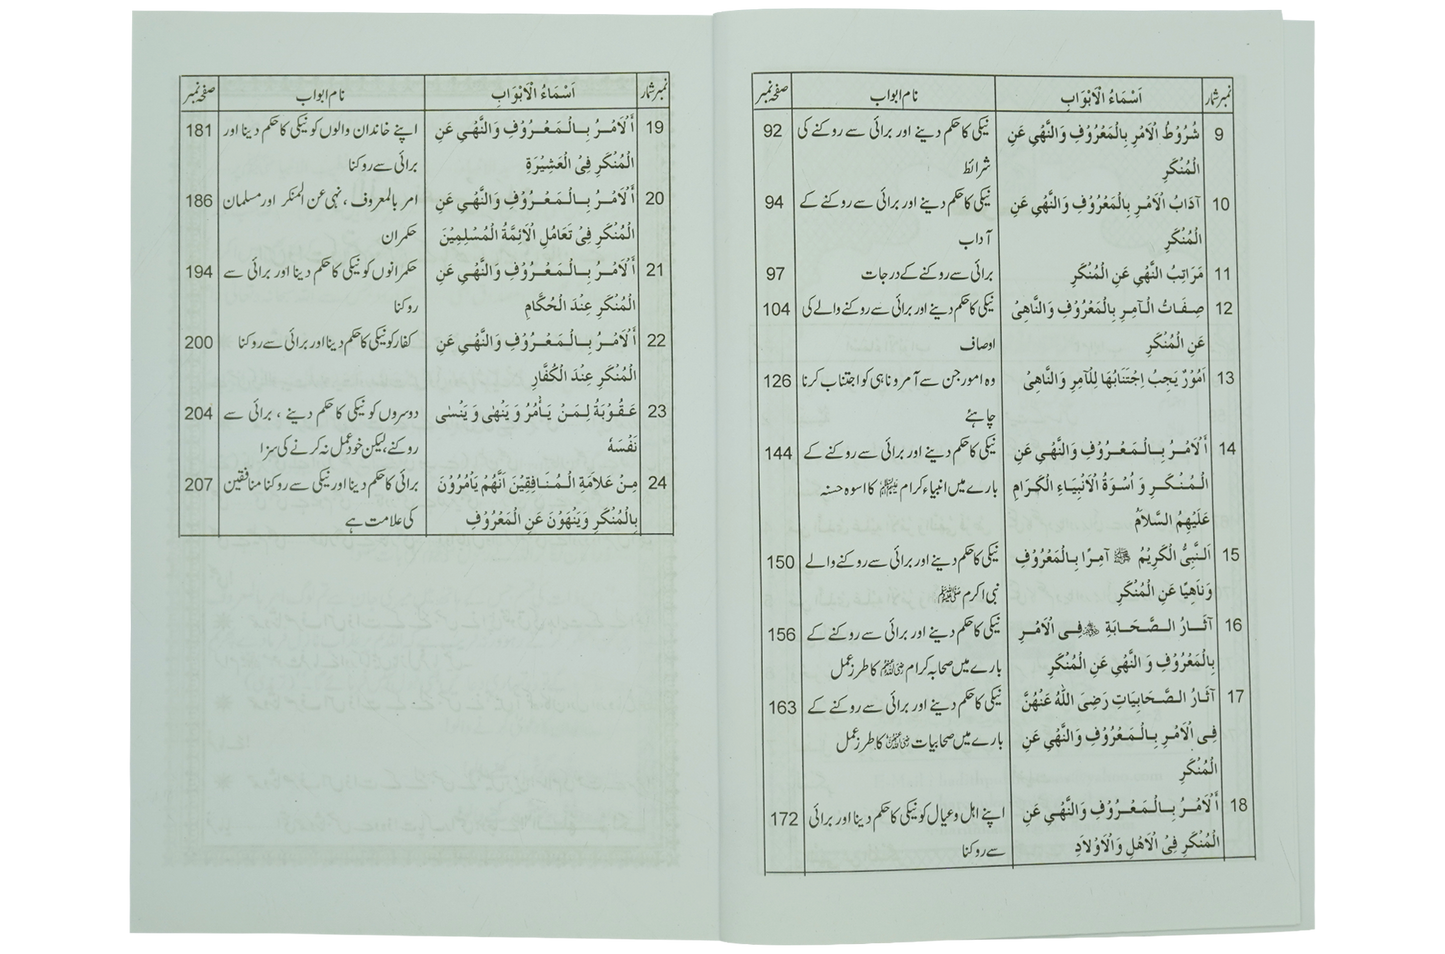 نمبر شمار اَسْمَاءُ الْاَبْوَابِ نام ابواب صفحہ نمبر
9 شُرُوْطُ الْاَمْرِ بِالْمَعْرُوْفِ وَالنَّهْيِ عَنِ نیکی کا حکم دینے اور برائی سے روکنے کی 92
الْمُنْكَرِ شرائط
10 آدَابُ الْاَمْرِ بِالْمَعْرُوْفِ وَالنَّهْيِ عَنِ نیکی کا حکم دینے اور برائی سے روکنے کے 94
الْمُنْكَرِ آداب
11 مَرَاتِبُ النَّهْيِ عَنِ الْمُنْكَرِ برائی سے روکنے کے درجات 97
12 صِفَاتُ الْآمِرِ بِالْمَعْرُوْفِ وَالنَّاهِيْ نیکی کا حکم دینے اور برائی سے روکنے والے کی 104
عَنِ الْمُنْكَرِ اوصاف
13 اُمُوْرٌ يَجِبُ اِجْتِنَابُهَا لِلْآمِرِ وَالنَّاهِيْ وہ امور جن سے آمر و ناہی کو اجتناب کرنا 126
چاہئے
14 اَلْاَمْرُ بِالْمَعْرُوْفِ وَالنَّهْيِ عَنِ نیکی کا حکم دینے اور برائی سے روکنے کے 144
الْمُنْكَرِ وَ اُسْوَةُ الْاَنْبِيَاءِ الْكِرَامِ بارے میں انبیاء کرام ﷺ کا اسوہ حسنہ
عَلَيْهِمُ السَّلَامُ
15 اَلنَّبِيُّ الْكَرِيْمُ ﷺ آمِرًا بِالْمَعْرُوْفِ نیکی کا حکم دینے اور برائی سے روکنے والے 150
وَنَاهِيًا عَنِ الْمُنْكَرِ نبی اکرم ﷺ
16 آثَارُ الصَّحَابَةِ فِي الْاَمْرِ نیکی کا حکم دینے اور برائی سے روکنے کے 156
بِالْمَعْرُوْفِ وَ النَّهْيِ عَنِ الْمُنْكَرِ بارے میں صحابہ کرام کا طرز عمل
17 آثَارُ الصَّحَابِيَاتِ رَضِيَ اللّٰهُ عَنْهُنَّ نیکی کا حکم دینے اور برائی سے روکنے کے 163
فِي الْاَمْرِ بِالْمَعْرُوْفِ وَالنَّهْيِ عَنِ بارے میں صحابیات کا طرز عمل
الْمُنْكَرِ
18 اَلْاَمْرُ بِالْمَعْرُوْفِ وَالنَّهْيِ عَنِ اپنے اہل و عیال کو نیکی کا حکم دینا اور برائی 172
الْمُنْكَرِ فِيْ الْاَهْلِ وَالْاَوْلَادِ سے روکنا
نمبر شمار اَسْمَاءُ الْاَبْوَابِ نام ابواب صفحہ نمبر
19 اَلْاَمْرُ بِالْمَعْرُوْفِ وَالنَّهْيِ عَنِ اپنے خاندان والوں کو نیکی کا حکم دینا اور 181
الْمُنْكَرِ فِيْ الْعَشِيْرَةِ برائی سے روکنا
20 اَلْاَمْرُ بِالْمَعْرُوْفِ وَالنَّهْيِ عَنِ امر بالمعروف ، نہی عن المنکر اور مسلمان 186
الْمُنْكَرِ فِيْ تَعَامُلِ الْاَئِمَّةُ الْمُسْلِمِيْنَ حکمران
21 اَلْاَمْرُ بِالْمَعْرُوْفِ وَالنَّهْيِ عَنِ حکمرانوں کو نیکی کا حکم دینا اور برائی سے 194
الْمُنْكَرِ عِنْدَ الْحُكَّامِ روکنا
22 اَلْاَمْرُ بِالْمَعْرُوْفِ وَالنَّهْيِ عَنِ کفار کو نیکی کا حکم دینا اور برائی سے روکنا 200
الْمُنْكَرِ عِنْدَ الْكُفَّارِ
23 عَقُوْبَةُ لِمَنْ يَأْمُرُ وَ يَنْهٰى وَ يَنْسٰى دوسروں کو نیکی کا حکم دینے ، برائی سے 204
نَفْسَهٗ روکنے، لیکن خود عمل نہ کرنے کی سزا
24 مِنْ عَلَامَةِ الْمُنَافِقِيْنَ اَنَّهُمْ يَاْمُرُوْنَ برائی کا حکم دینا اور نیکی سے روکنا منافقین 207
بِالْمُنْكَرِ وَيَنْهَوْنَ عَنِ الْمَعْرُوْفِ کی علامت ہے